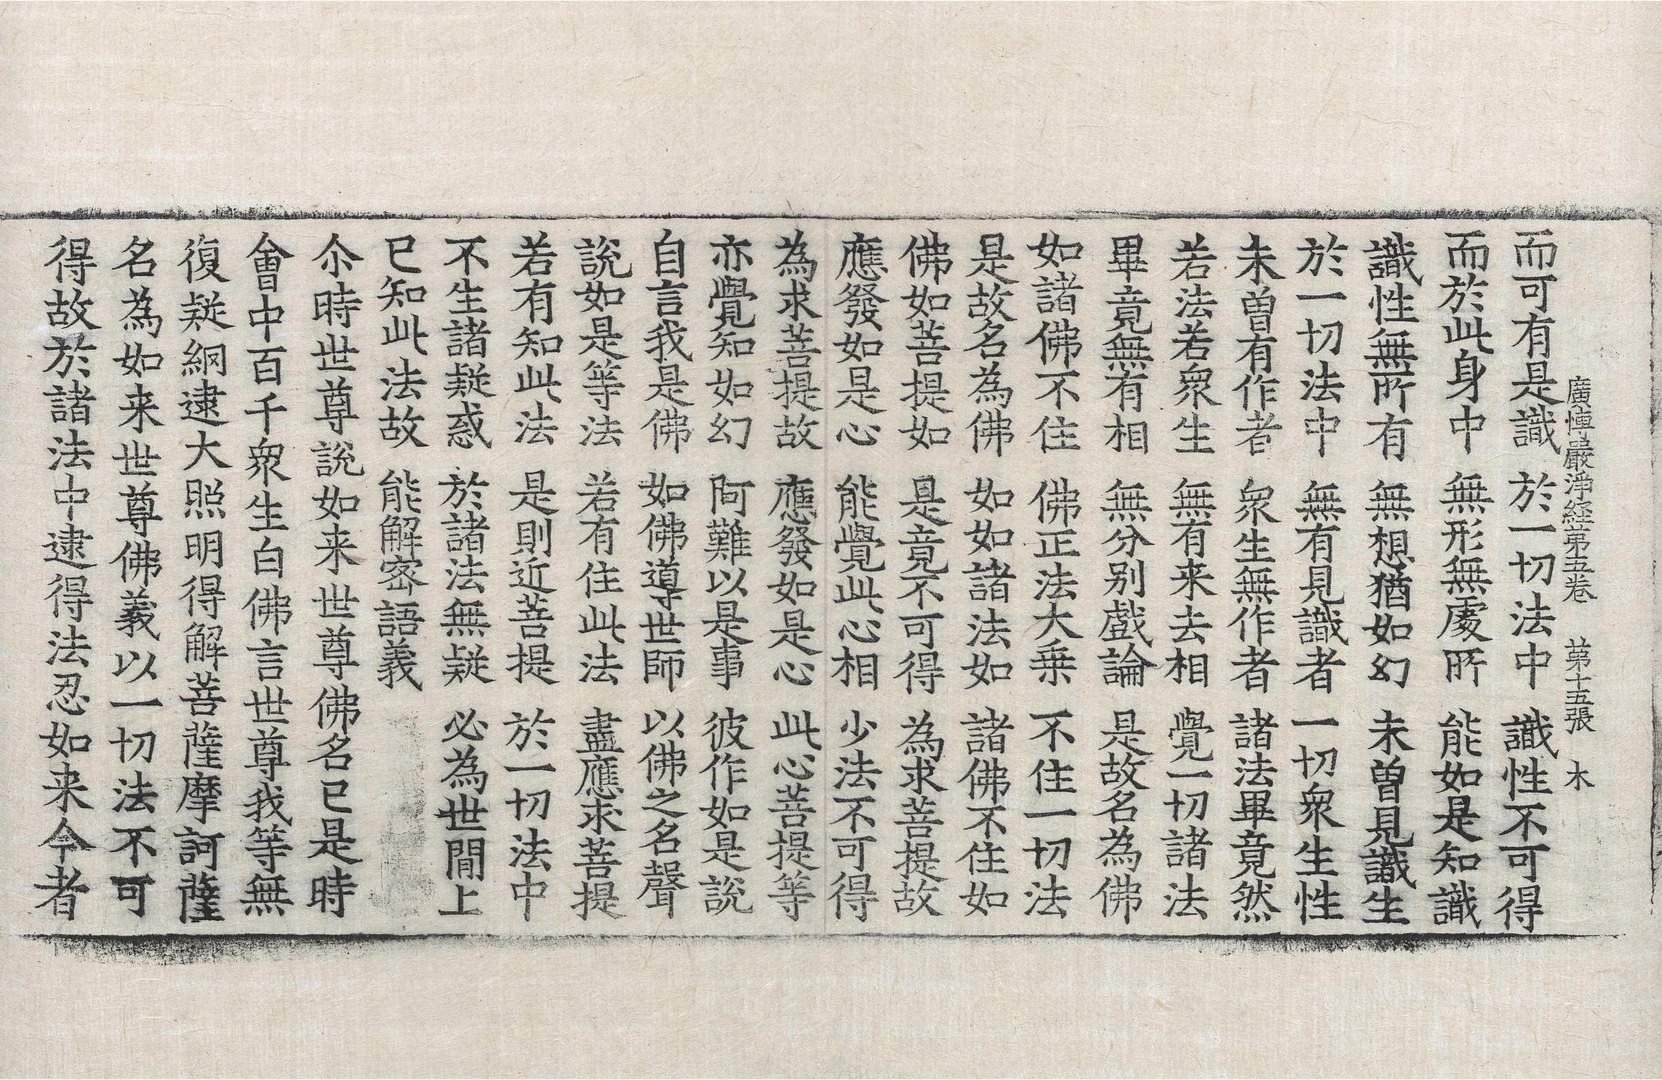 廣博嚴淨經第五卷 第十五張 木
而可有是識 於一切法中 識性不可得
而於此身中 無形無處所 能如是知識
識性無所有 無想猶如幻 未曽見識生
於一切法中 無有見識者 一切衆生性
未曽有作者 衆生無作者 諸法畢竟然
若法若衆生 無有来去相 覺一切諸法
畢竟無有相 無分别戲論 是故名為佛
如諸佛不住 佛正法大乗 不住一切法
是故名為佛 如如諸法如 諸佛不住如
佛如菩提如 是竟不可得 為求菩提故
應發如是心 能覺此心相 少法不可得
為求菩提故 應發如是心 此心菩提等
亦覺知如幻 阿難以是事 彼作如是說
自言我是佛 如佛導世師 以佛之名聲
說如是等法 若有住此法 盡應求菩提
若有知此法 是則近菩提 於一切法中
不生諸疑惑 於諸法無疑 必為世閒上
已知此法故 能解密語義
尒時世尊說如来世尊佛名已是時
會中百千衆生白佛言世尊我等無
復疑網逮大照明得解菩薩摩訶薩
名為如来世尊佛義以一切法不可
得故於諸法中逮得法忍如来今者